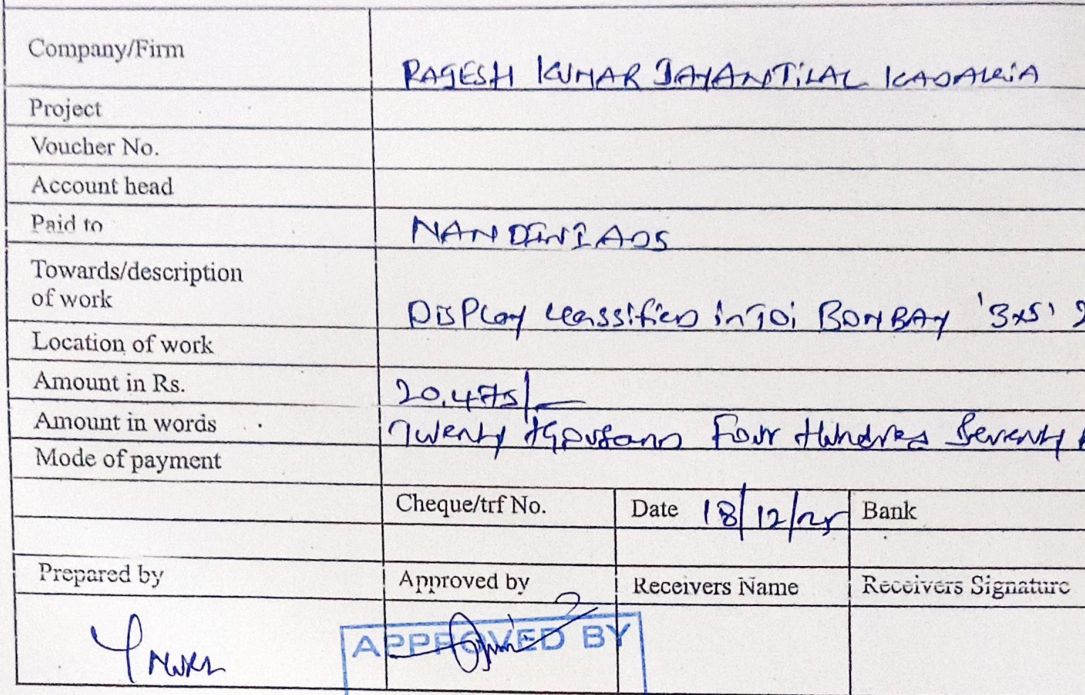 Company/Firm RAJESH KUMAR JAYANTILAL KADAKIA
Project
Voucher No.
Account head
Paid to NANDINI ADS
Towards/description
of work DISPLAY CLASSIFIED in TOI BOMBAY '3x5'
Location of work
Amount in Rs. 20,475/-
Amount in words Twenty Thousand Four Hundred Seventy
Mode of payment
Cheque/trf No. Date 18/12/25 Bank
Prepared by Approved by Receivers Name Receivers Signature
APPROVED BY